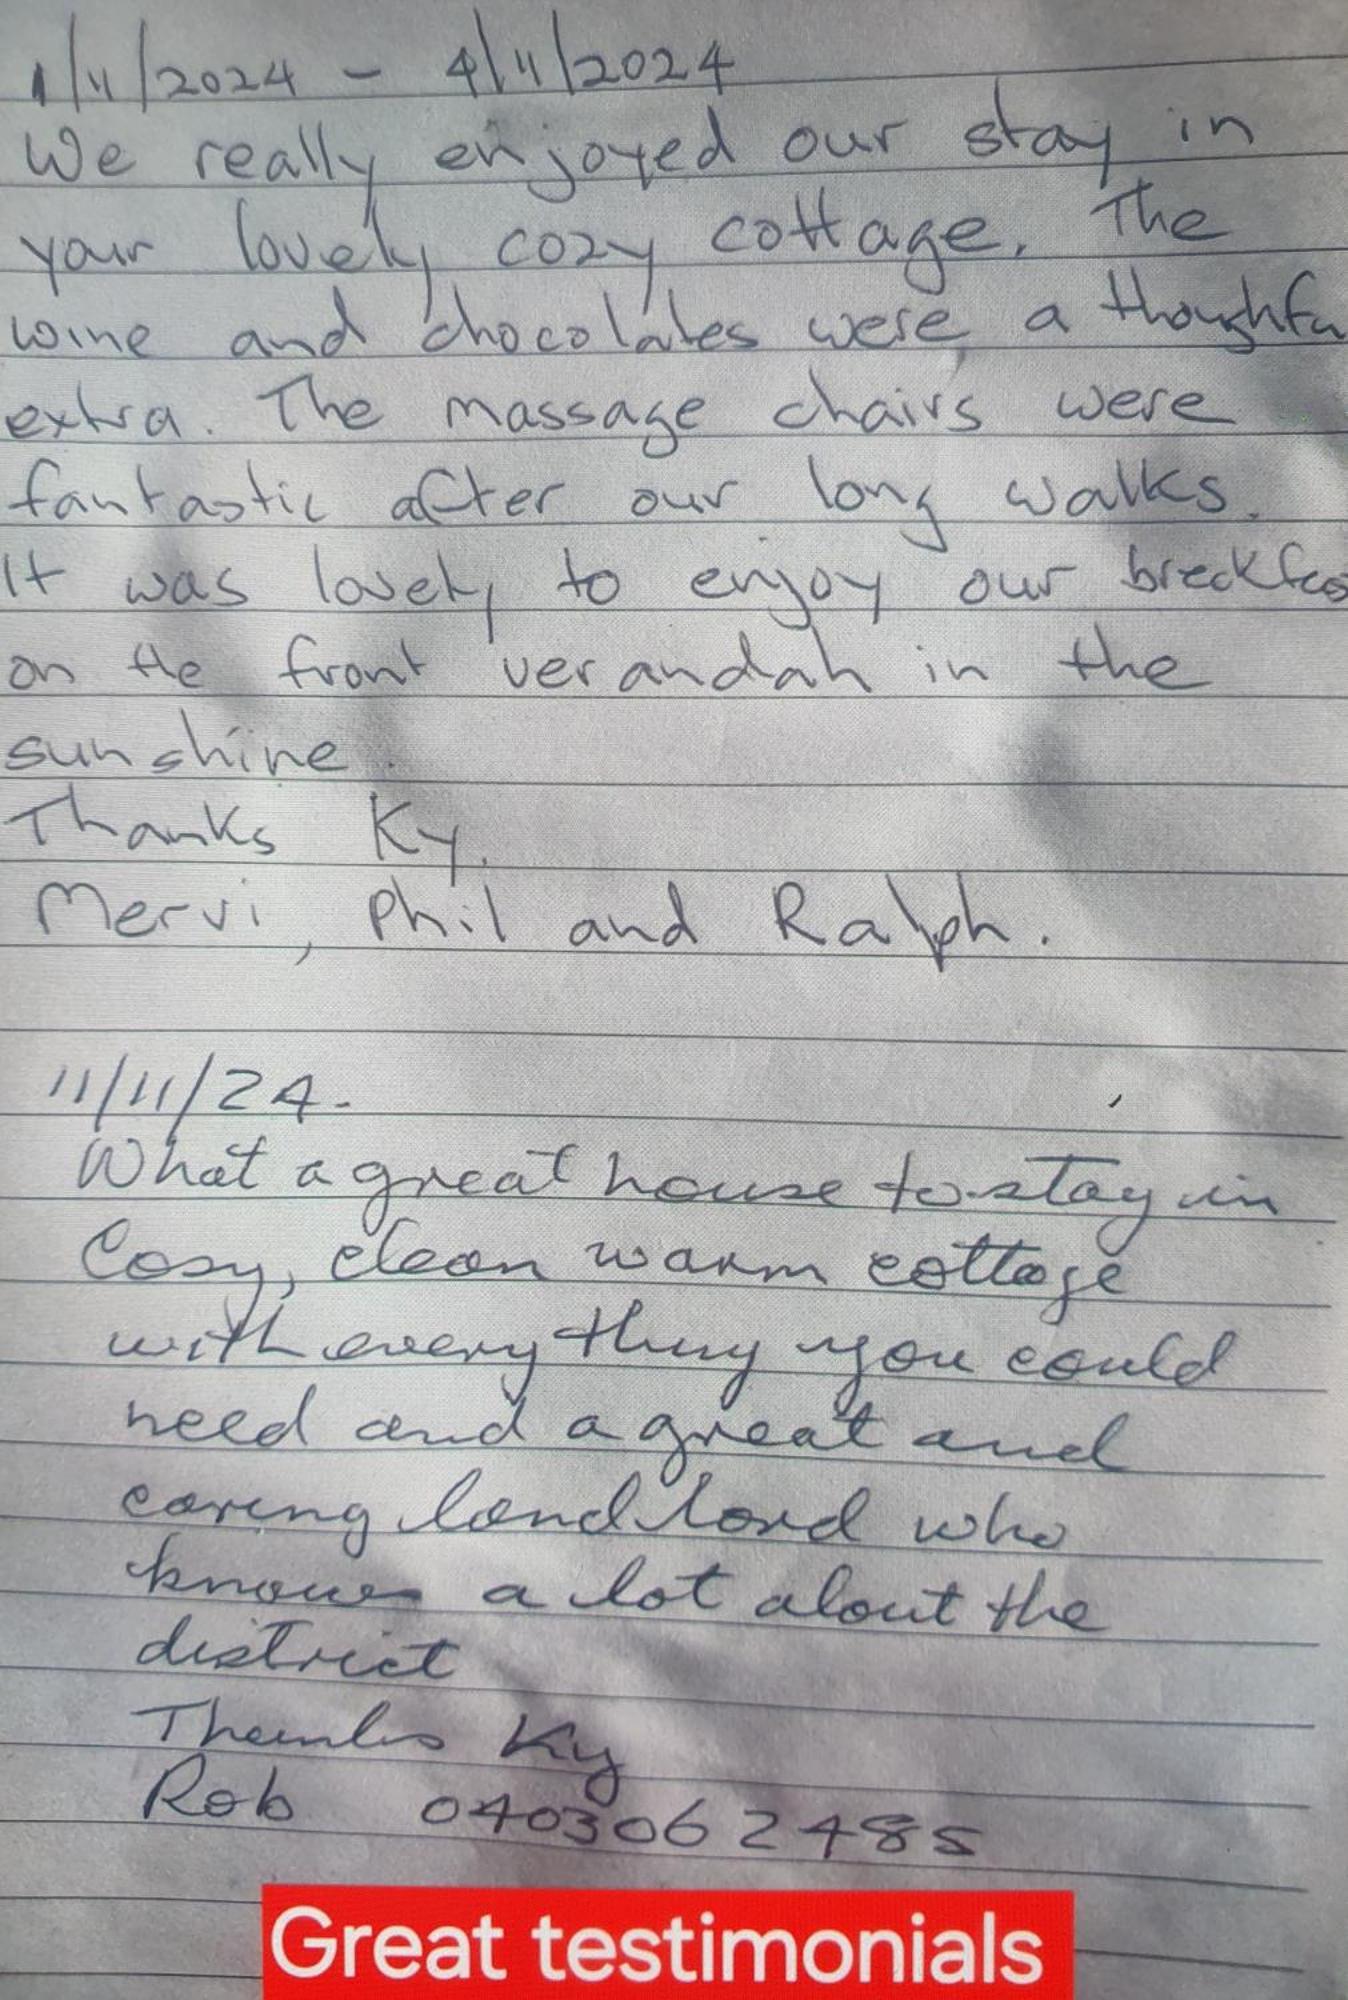 1/11/2024 - 4/11/2024
We really enjoyed our stay in
your lovely cozy cottage. The
wine and chocolates were a thoughtfu
extra. The massage chairs were
fantastic after our long walks.
It was lovely to enjoy our breckfas
on the front verandah in the
sunshine.
Thanks Ky.
Mervi, Phil and Ralph.
11/11/24.
What a great house to stay in
Cosy, clean warm cottage
with every thing you could
need and a great and
caring landlord who
knows a lot about the
district
Thanks Ky
Rob 0403062485
Great testimonials